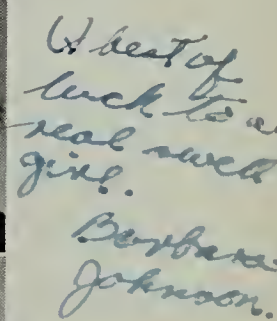 A best of
luck to a
real swell
girl.
Barbara
Johnson.